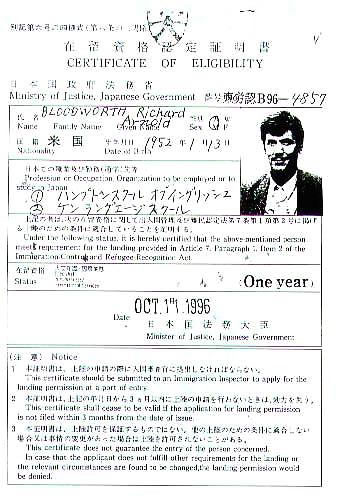 在留資格認定証明書
CERTIFICATE OF ELIGIBILITY
日本国政府法務省
Ministry of Justice, Japanese Government 番号 東労認B96-4857
氏名 BLOODWORTH, Richard Arnold
Name Family Name Given Name Sex M F
国籍 米国 生年月日 1952年1月13日
Nationality Date of Birth
日本での職業及び勤務(通学)先等
Profession or Occupation, Organization to be employed or to study in Japan
① ハンプトンスクール オブイングリッシュ
② ケンランゲージスクール
上記の者は、次の在留資格に関して出入国管理及び難民認定法第7条第1項第2号に掲げる上陸のための条件に適合していることを証明する。
Under the following status, it is hereby certified that the above-mentioned person meets requirement for the landing provided in Article 7, Paragraph 1, Item 2 of the Immigration-Control and Refugee-Recognition Act.
在留資格 人文知識・国際業務
Status : One year)
OCT. 1996
Date
日本国法務大臣
Minister of Justice, Japanese Government
(注意) Notice
1 本証明書は、上陸の申請の際に入国審査官に提出しなければならない。
This certificate should be submitted to an Immigration Inspector to apply for the landing permission at a port of entry.
2 本証明書は、上記の年月日から3か月以内に上陸の申請を行わないときは、効力を失う。
This certificate shall cease to be valid if the application for landing permission is not filed within 3 months from the date of issue.
3 本証明書は、上陸許可を保証するものではない。他の上陸のための条件に適合しない場合又は事情の変更があった場合は上陸を許可されないことがある。
This certificate does not guarantee the entry of the person concerned.
In case that the applicant does not fulfill other requirements for the landing or the relevant circumstances are found to be changed, the landing permission would be denied.